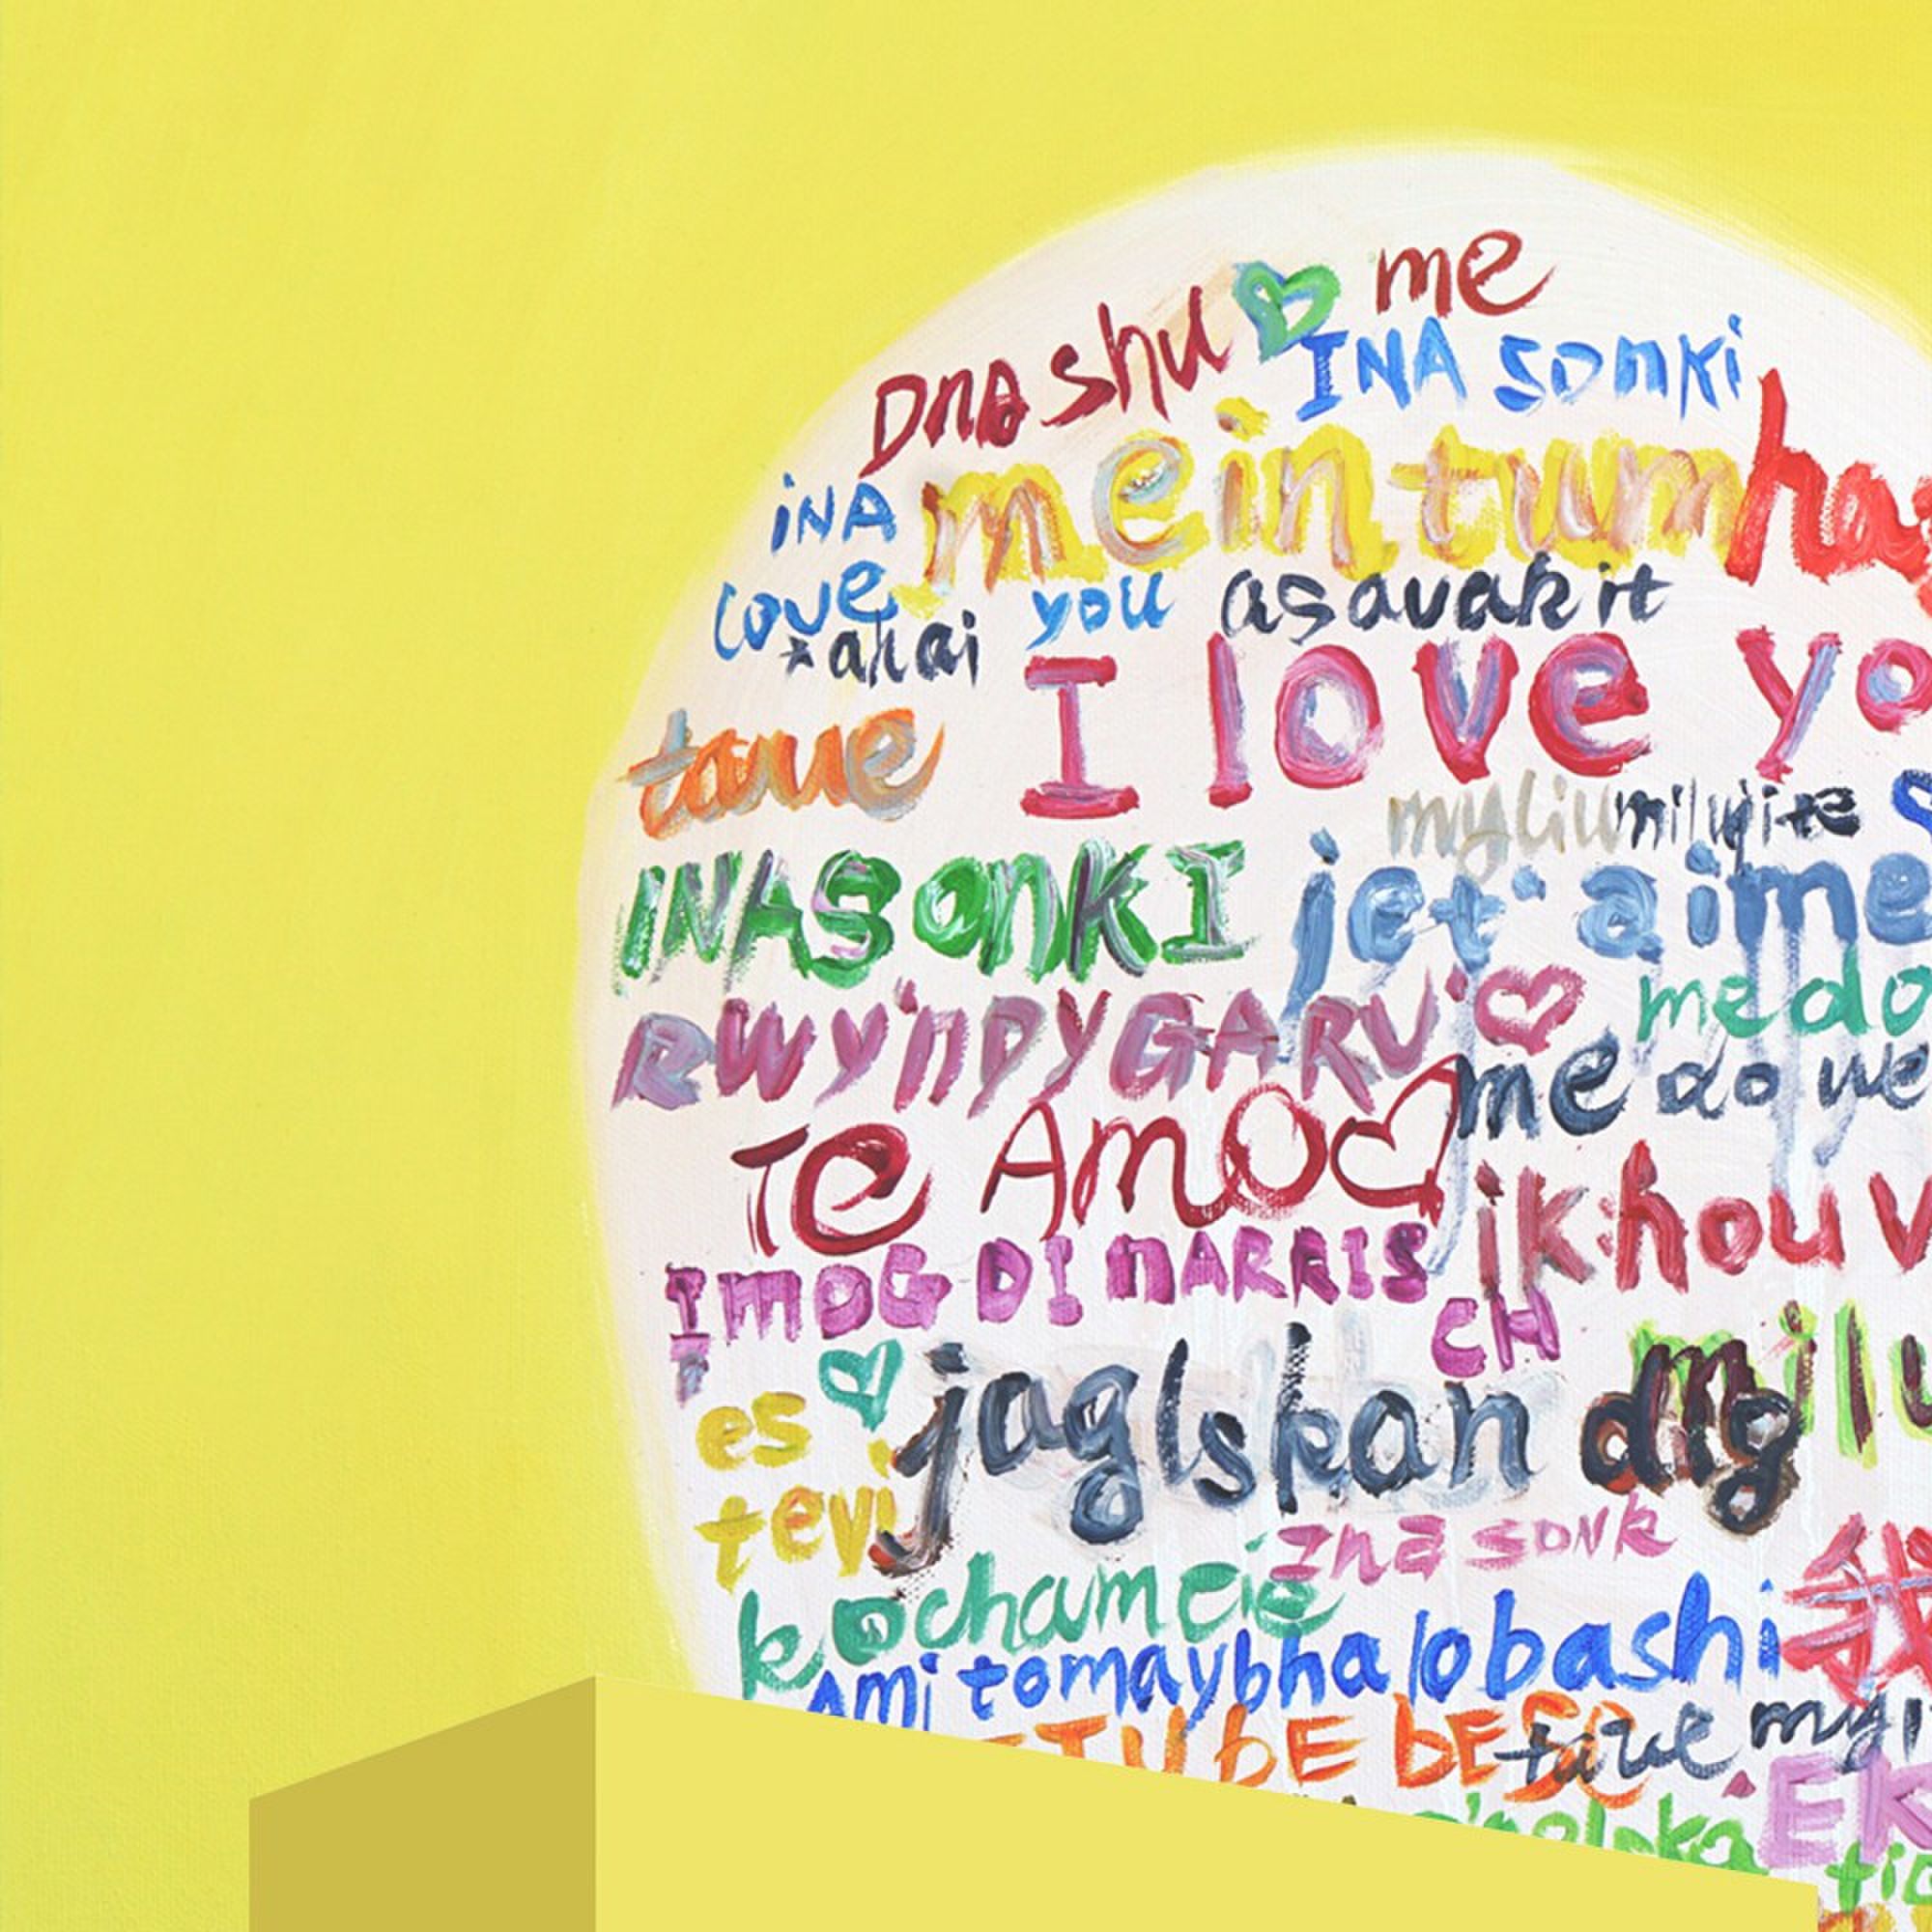 me
Dnashu
INA sonki
mein tum
iNA
Love you
asavakit
*ahai
I love yo
taue
myliu
milujite
INASonKI
jet'aime
me do
RWY'nDYGARU'
me do we
Te Amo
ik hou v
ImOG DI nARRIS
CH
es
jaglskan dig
milu
tevi
Ina sonk
kochamcie
我
Ami tomaybhalobashi
TU bE
bESe
EK